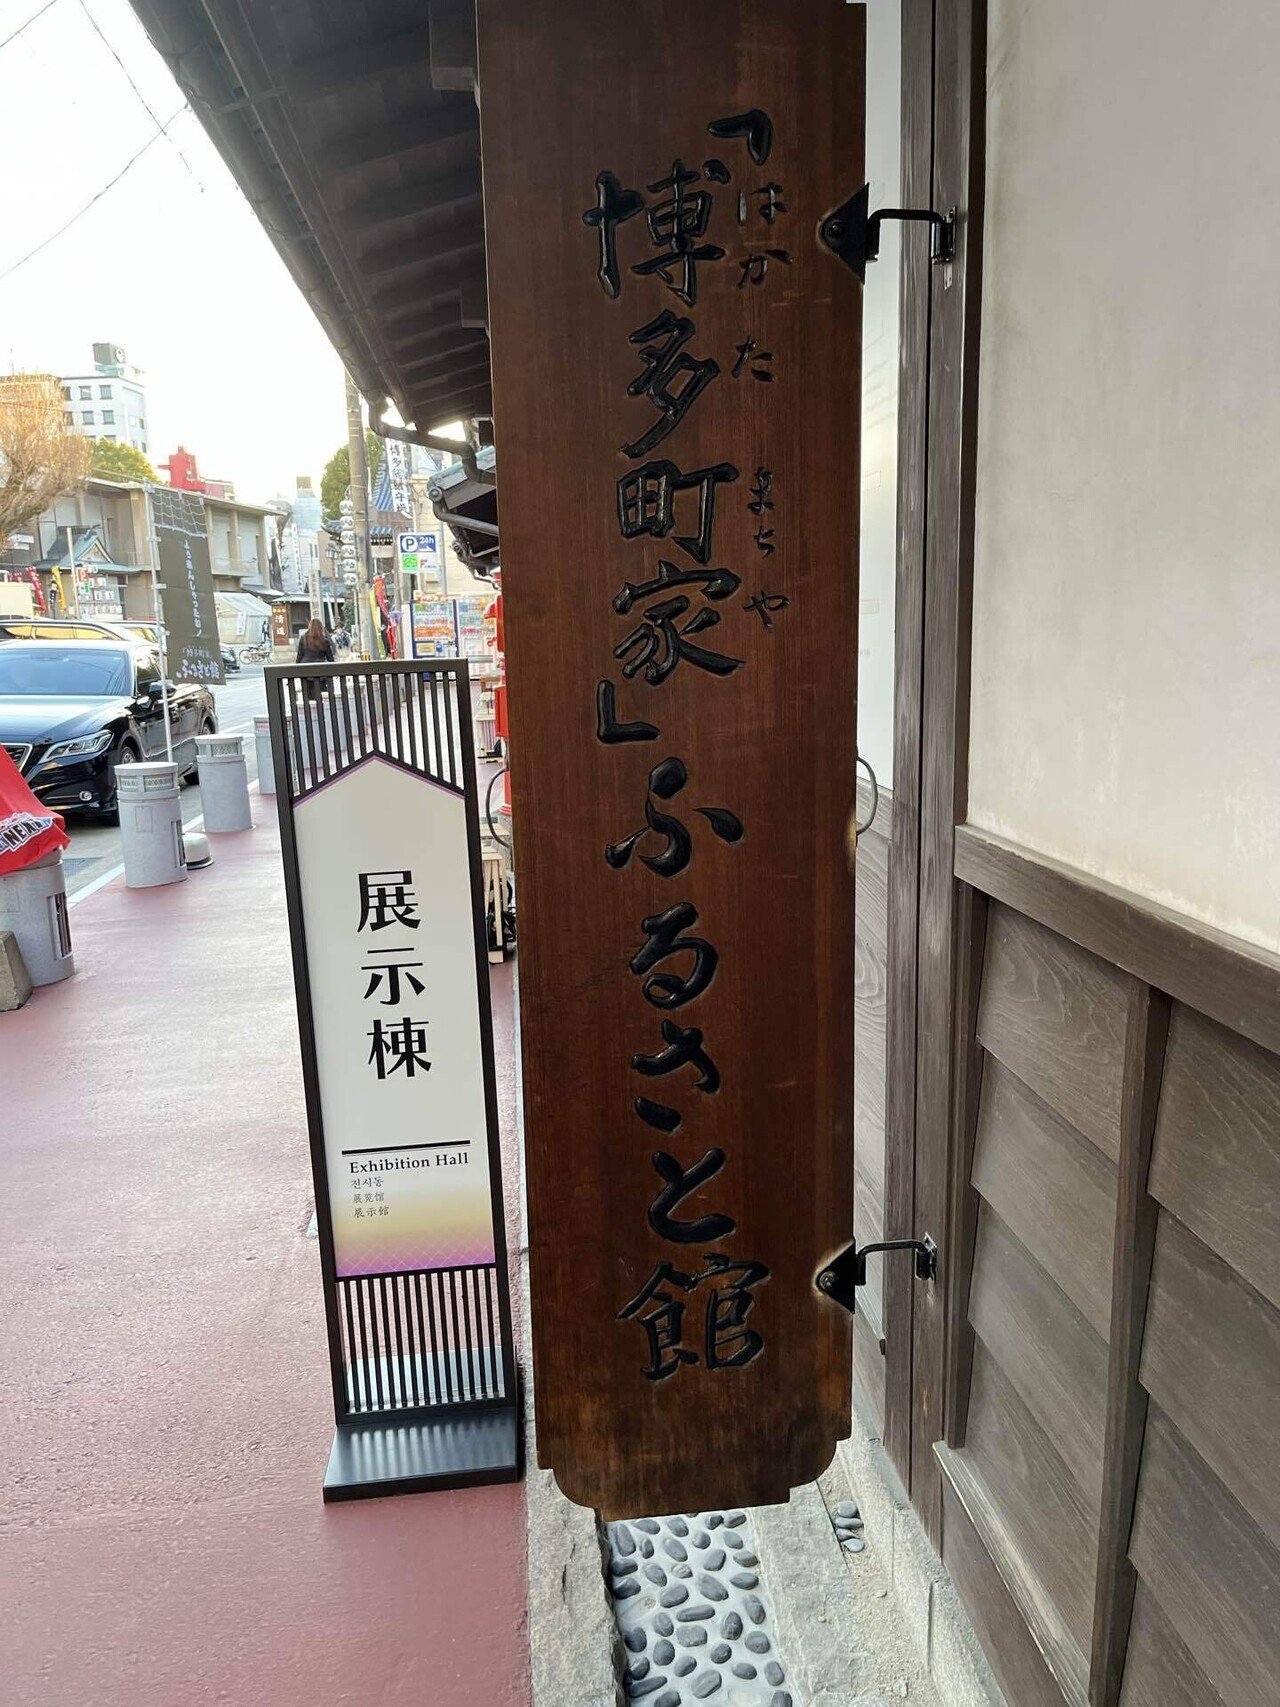 「博多町家」ふるさと館
はかた まちや
展示棟
Exhibition Hall
전시동
展览馆
展示館
P 24h
ふるさと館
清道